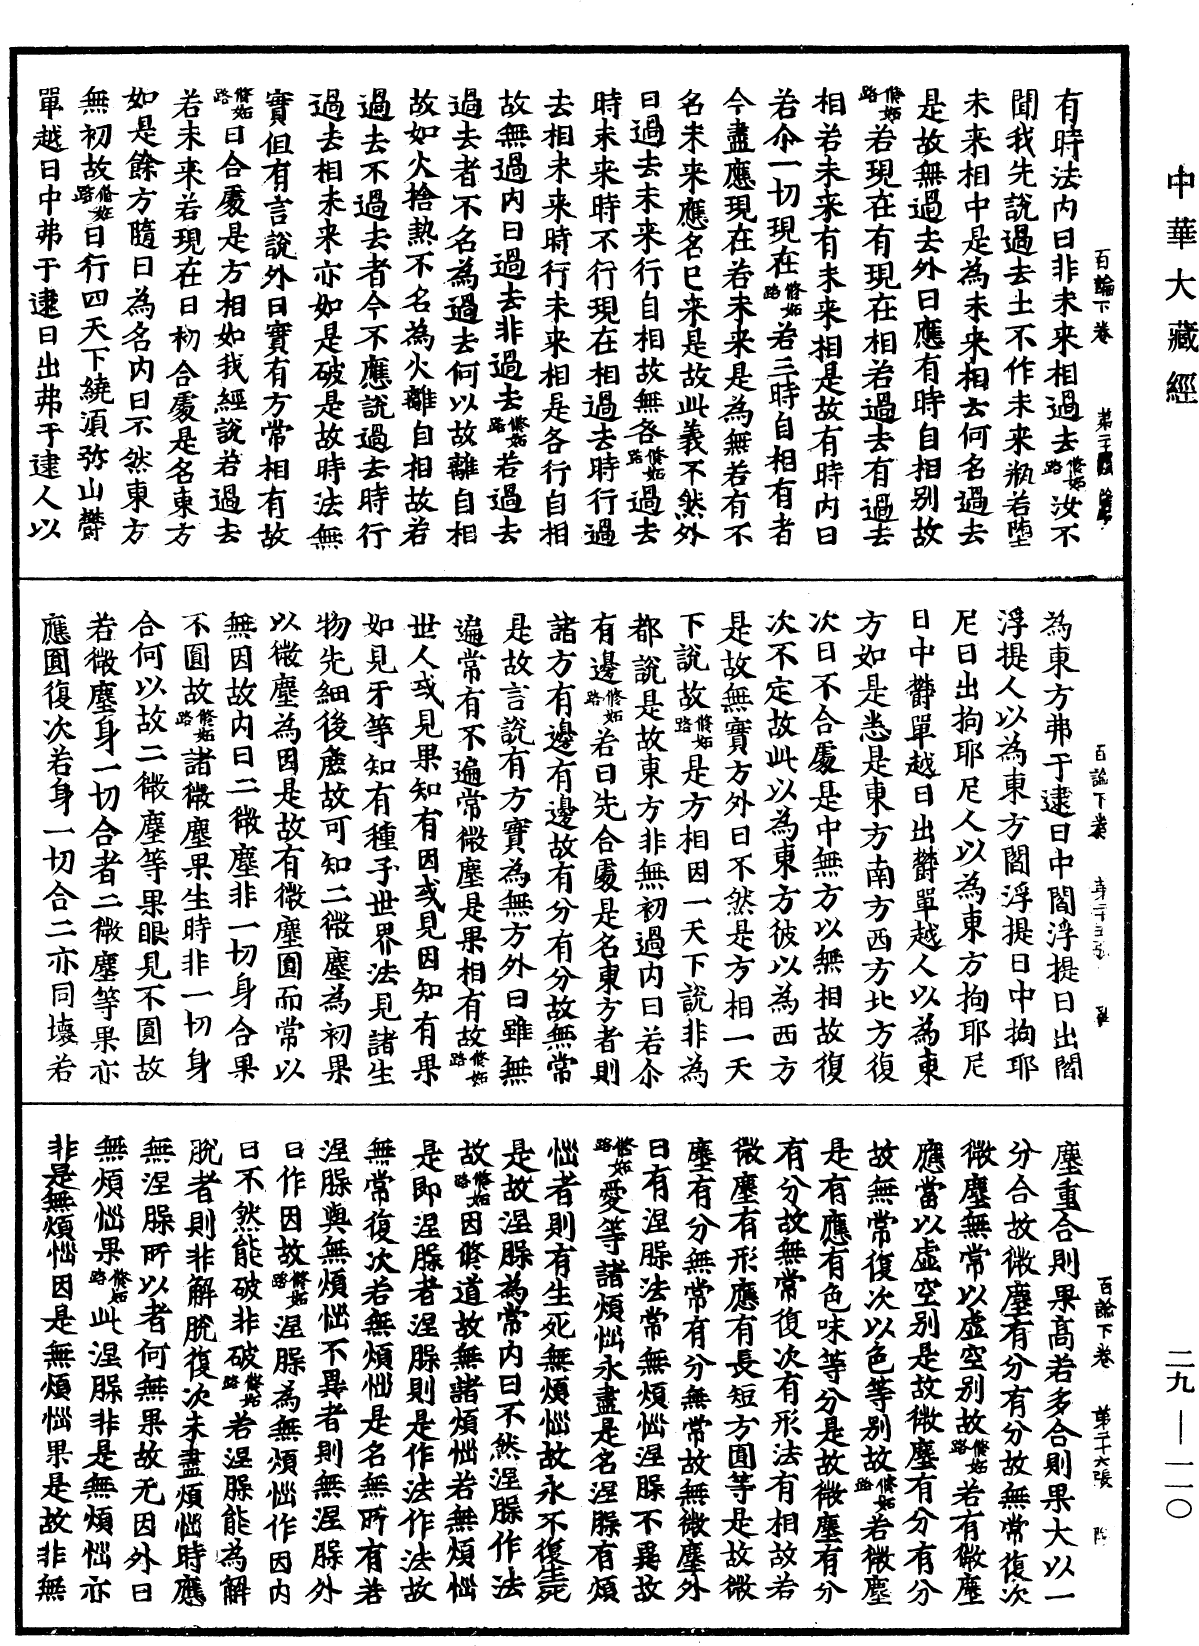 中華大藏經
百論下卷
有時法內曰非未來相過去修妬路汝不
聞我先說過去土不作未來瓶若墮
未來相中是為未來相云何名過去
是故無過去外曰應有時自相別故
修妬路若現在有現在相若過去有過去
相若未來有未來相是故有時內曰
若尒一切現在修妬路若三時自相有者
今盡應現在若未來是為無若有不
名未來應名已来是故此義不然外
曰過去未来行自相故無各修妬路過去
時未来時不行現在相過去時行過
去相未来時行未来相是各行自相
故無過內曰過去非過去修妬路若過去
過去者不名為過去何以故離自相
故如火捨熱不名為火離自相故若
過去不過去者今不應說過去時行
過去相未来亦如是破是故時法無
實但有言說外曰實有方常相有故
修妬路日合處是方相如我經說若過去
若未来若現在日初合處是名東方
如是餘方隨日為名內曰不然東方
無初故修妬路日行四天下繞須弥山欝
單越日中弗于逮日出弗于逮人以
百論下卷
為東方弗于逮日中閻浮提日出閻
浮提人以為東方閻浮提日中拘耶
尼日出拘耶尼人以為東方拘耶尼
日中欝單越日出欝單越人以為東
方如是悉是東方南方西方北方復
次日不合處是中無方以無相故復
次不定故此以為東方彼以為西方
是故無實方外曰不然是方相一天
下說故修妬路是方相因一天下說非為
都說是故東方非無初過內曰若尒
有邊修妬路若日先合處是名東方者則
諸方有邊有邊故有分有分故無常
是故言說有方實為無方外曰雖無
遍常有不遍常微塵是果相有故修妬路
世人或見果知有因或見因知有果
如見牙等知有種子世界法見諸生
物先細後麁故可知二微塵為初果
以微塵為因是故有微塵圓而常以
無因故內曰二微塵非一切身合果
不圓故修妬路諸微塵果生時非一切身
合何以故二微塵等果眼見不圓故
若微塵身一切合者二微塵等果亦
應圓復次若身一切合二亦同壞若
百論下卷 第二十六張
塵重合則果高若多合則果大以一
分合故微塵有分有分故無常復次
微塵無常以虛空別故修妬路若有微塵
應當以虛空別是故微塵有分有分
故無常復次以色等別故修妬路若微塵
是有應有色味等分是故微塵有分
有分故無常復次有形法有相故若
微塵有形應有長短方圓等是故微
塵有分無常有分無常故無微塵外
曰有涅槃法常無煩惱涅槃不異故
修妬路愛等諸煩惱永盡是名涅槃有煩
惱者則有生死無煩惱故永不復生死
是故涅槃為常內曰不然涅槃作法
故修妬路因修道故無諸煩惱若無煩惱
是即涅槃者涅槃則是作法作法故
無常復次若無煩惱是名無所有若
涅槃與無煩惱不異者則無涅槃外
曰作因故修妬路涅槃為無煩惱作因內
曰不然能破非破修妬路若涅槃能為解
脫者則非解脫復次未盡煩惱時應
無涅槃所以者何無果故无因外曰
無煩惱果修妬路此涅槃非是無煩惱亦
非是無煩惱因是無煩惱果是故非無
二九—一一〇